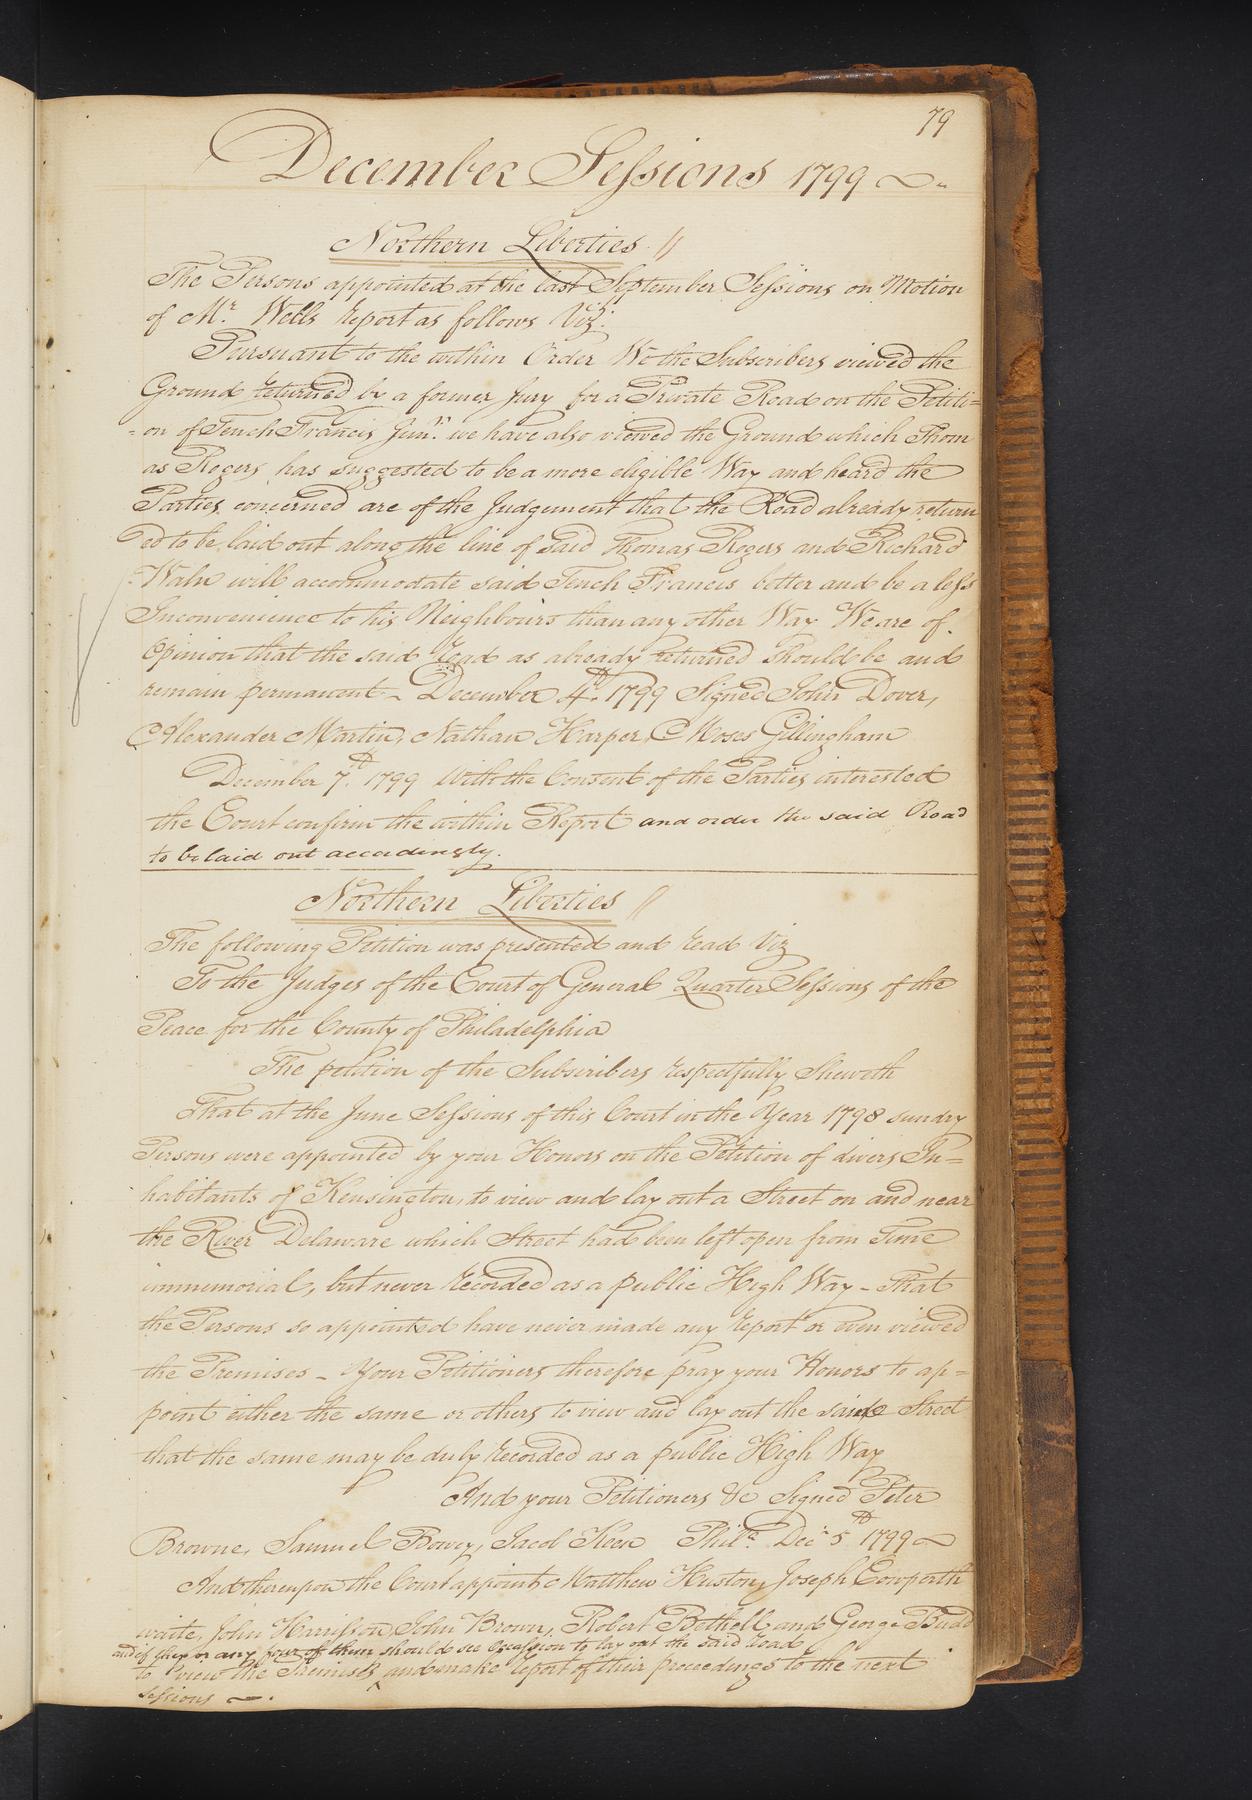 79
December Sessions 1799
Northern Liberties
The Persons appointed at the last September Sessions on Motion
of Mr. Wells Report as follows Vizt.
Pursuant to the within Order We the Subscribers viewed the
Ground returned by a former Jury for a Private Road on the Petiti=
=on of Tench Francis Junr. we have also viewed the Ground which Thom
as Rogers has suggested to be a more eligible Way and heard the
Parties concerned are of the Judgement that the Road already return
ed to be laid out along the line of said Thomas Rogers and Richard
Waln will accommodate said Tench Francis better and be a less
Inconvenience to his Neighbours than any other Way We are of
Opinion that the said Road as already returned should be and
remain permanent - December 4th 1799 Signed John Dover,
Alexander Martin, Nathan Harper, Moses Gillingham
December 7th 1799 With the Consent of the Parties interested
the Court confirm the within Report and order the said Road
to be laid out accordingly.
Northern Liberties
The following Petition was presented and read Viz
To the Judges of the Court of General Quarter Sessions of the
Peace for the County of Philadelphia
The petition of the Subscribers respectfully Sheweth
That at the June Sessions of this Court in the Year 1798 sundry
Persons were appointed by your Honors on the Petition of divers In=
habitants of Kensington, to view and lay out a Street on and near
the River Delaware which Street had been left open from Time
immemorial, but never recorded as a public High Way - That
the Persons so appointed have never made any report or even viewed
the Premises - Your Petitioners therefore pray your Honors to ap=
point either the same or others to view and lay out the said Street
that the same may be duly recorded as a public High Way
And your Petitioners &c Signed Peter
Browne, Samuel Bower, Jacob Keen Phila. Decr 5th 1799
And thereupon the Court appoint Matthew Huston, Joseph Cowperth
waite, John Harrison, John Brown, Robert Bethell and George Budd
and if they or any four of them should see Occassion to lay out the said road
to view the Premises ^ and make report of their proceedings to the next
sessions